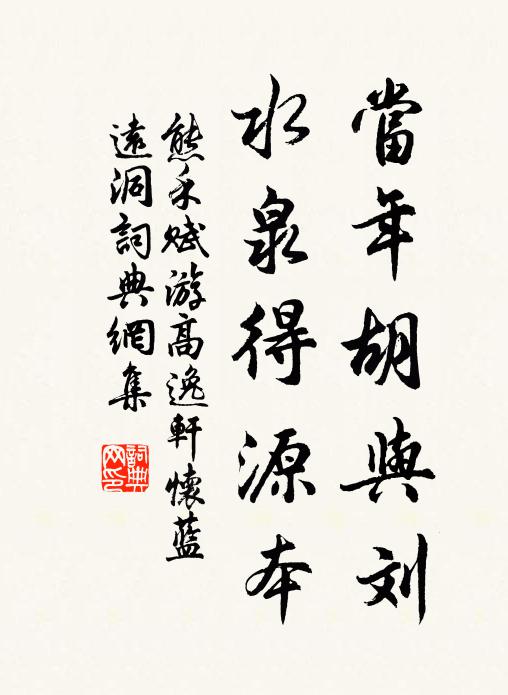 當年胡與刘
水泉得源本
熊禾赋游高逸軒懷藍
遠洞詞典網集
詞典网印